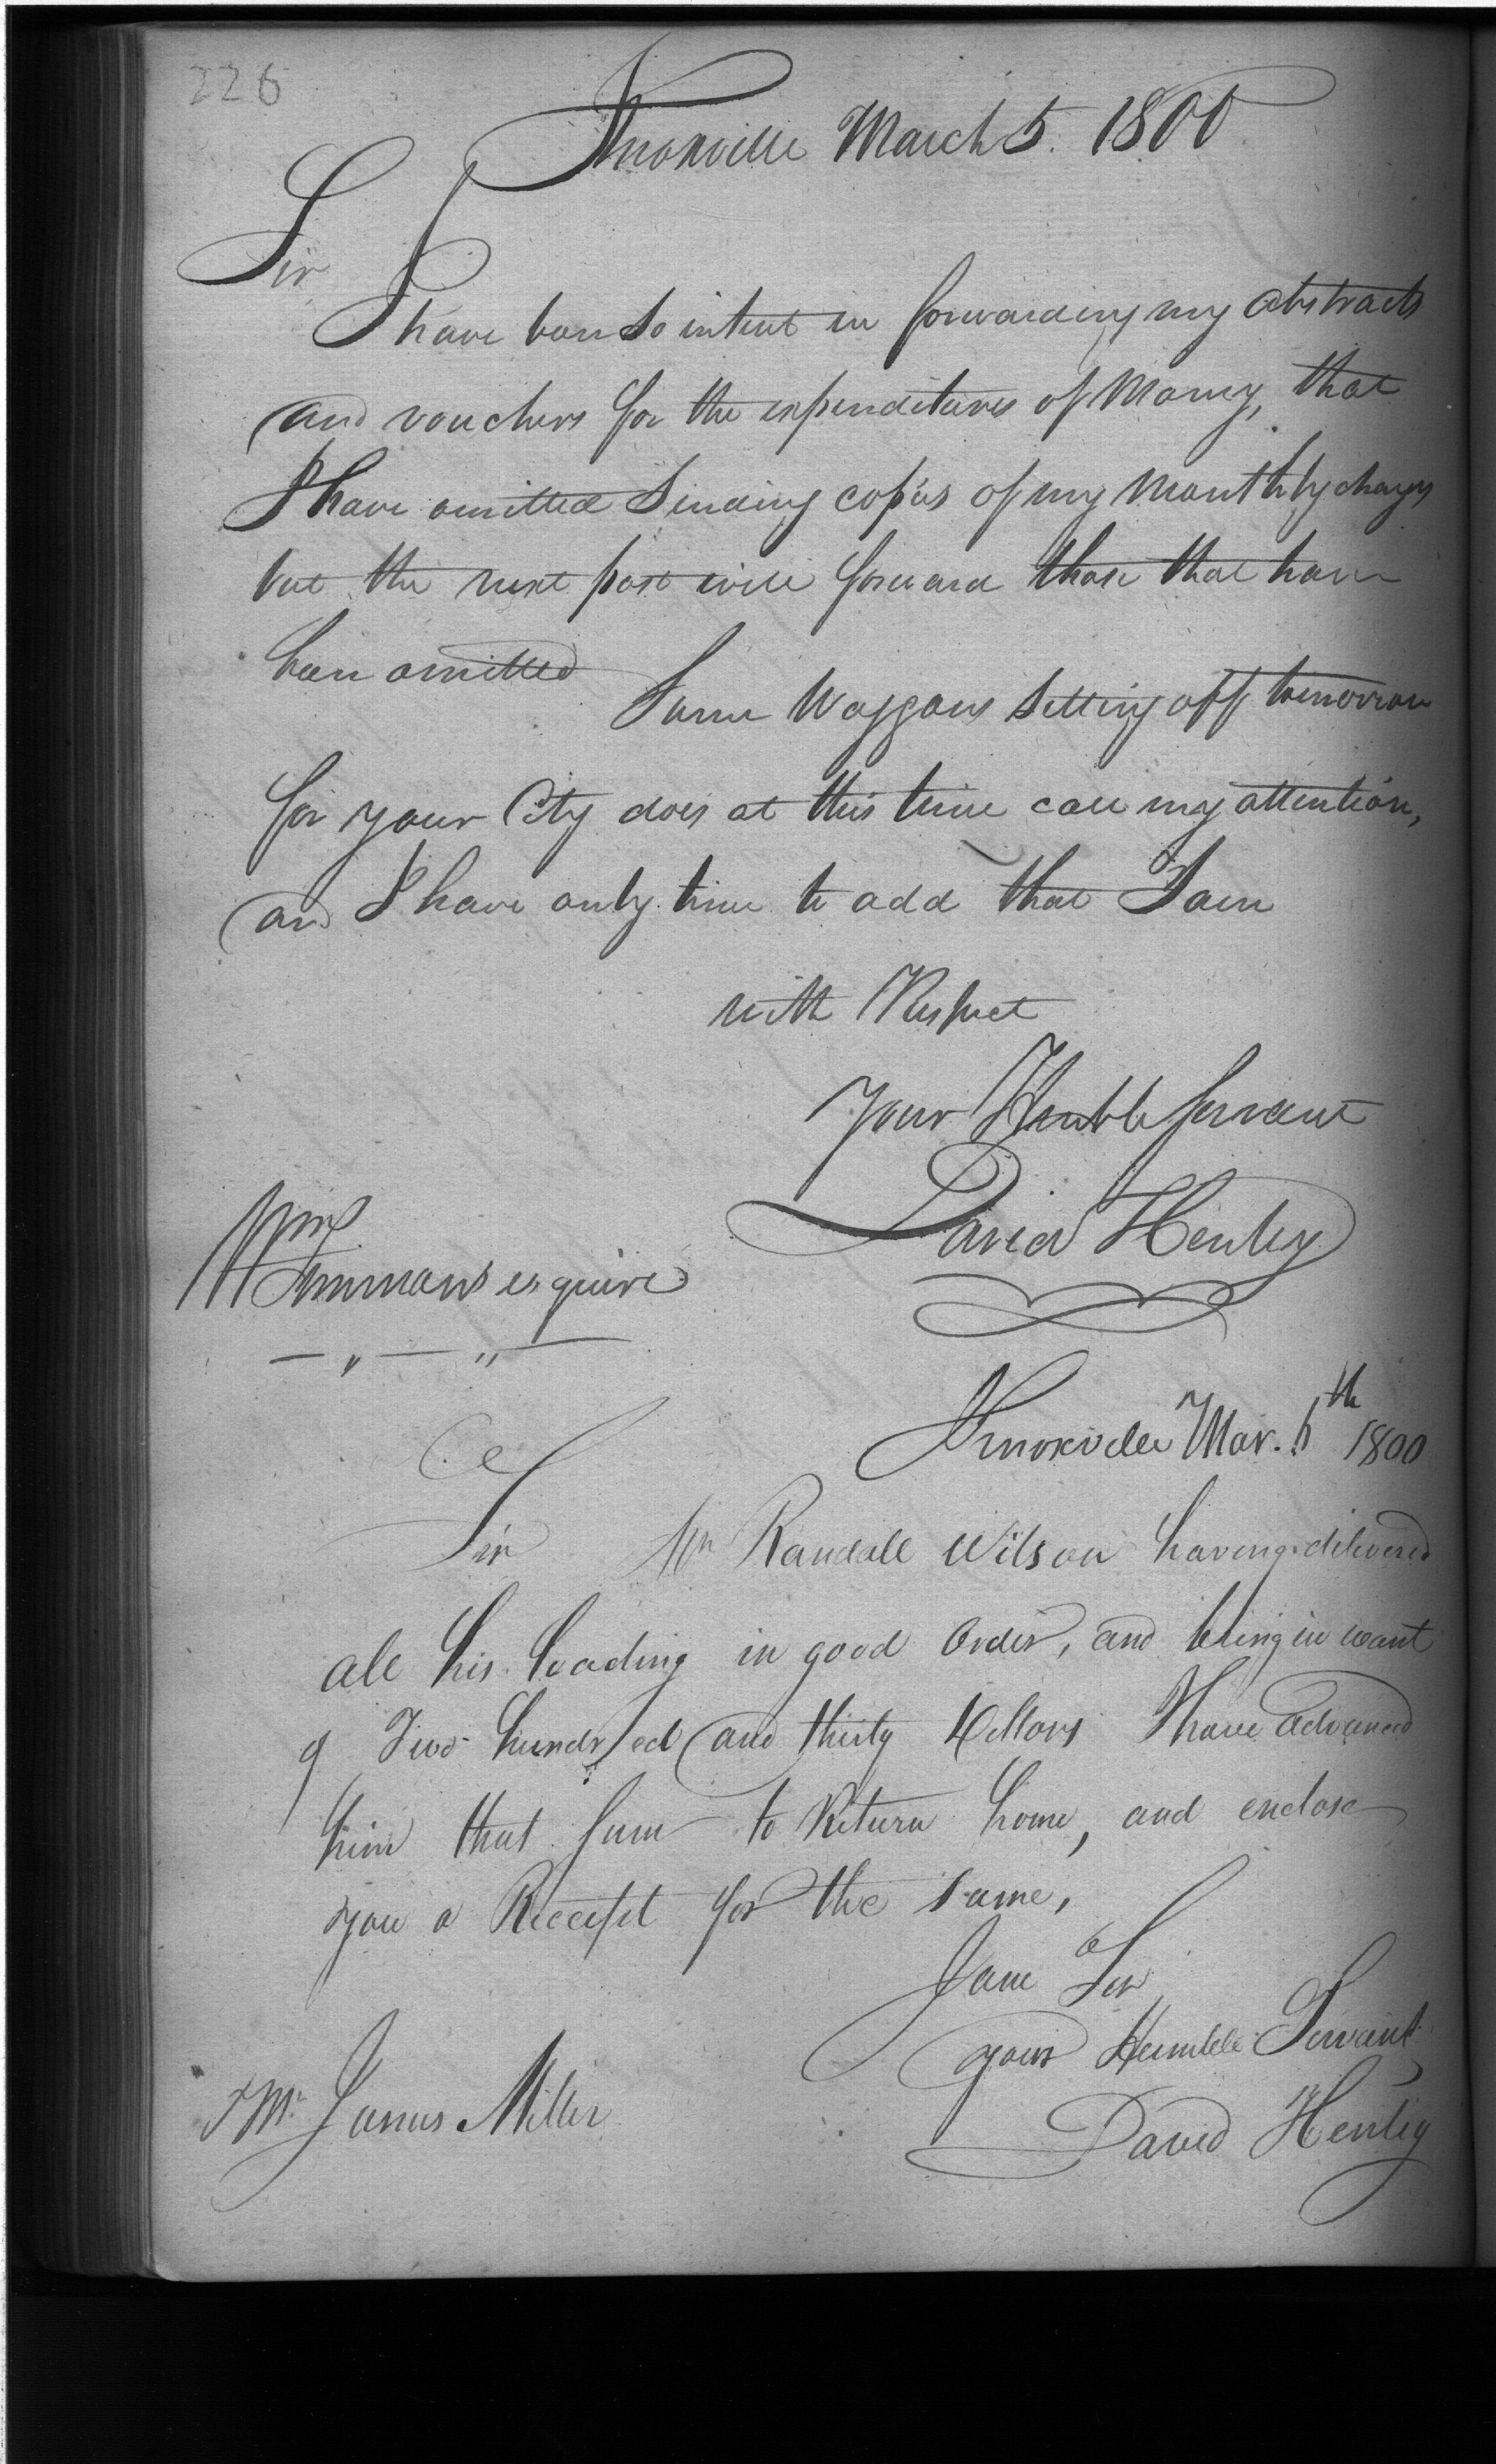 226
Knoxville March 5. 1800
Sir
I have been so intent in forwarding my abstracts
and vouchers for the expenditures of Money, that
I have omitted sending copies of my Monthly charges
but the next post will forward those that have
been omitted
Some Waggons setting off tomorrow
for your City does at this time call my attention,
and I have only time to add that I am
with Respect
Your Humble Servant
David Henley
Wm
Simmons esquire
Knoxville Mar. 5th 1800
Sir Mr Randall Wilson having delivered
all his loading in good Order, and being in want
of Two hundred and thirty Dollars I have advanced
him that sum to Return home, and enclose
you a Receipt for the same,
I am Sir
your Humble Servant
David Henley
Mr. James Miller